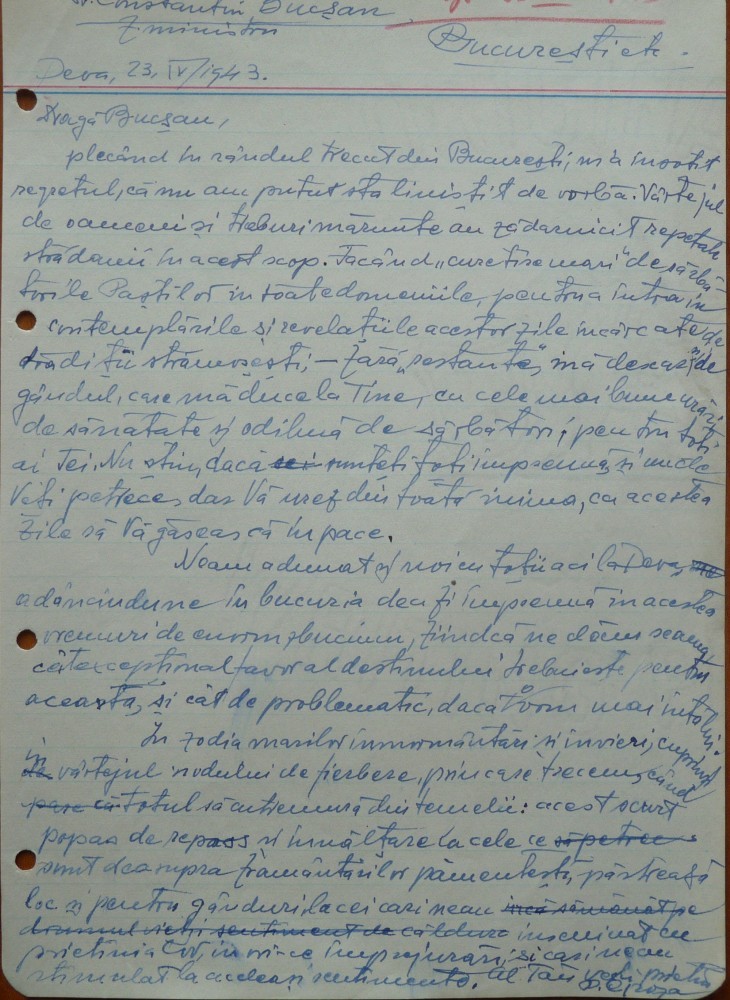 Constantin Bucșan
ministru
București etc.
Deva, 23, IV/1943.
Dragă Bucșan,
plecând în rândul trecut din București, m'a însoțit
regretul, că nu am putut sta liniștit de vorbă. Vârtejul
de oameni și treburi mărunte au zădărnicit repetate
strădanii în acest scop. Făcând „curetise mari" de sărbă-
torile Paștilor în toate domeniile, pentru a intra în
contemplările și revelațiile acestor zile încărcate de
tradiții strămoșești, – fără „restanțe", mă descarc și de
gândul, care mă duce la Tine, cu cele mai bune urări
de sănătate și odihnă de sărbători, pentru toți
ai Tei. Nu știu, dacă sunteți toți împreună, și unde
Veți petrece, dar Vă urez din toată inima, ca acestea
zile să Vă găsească în pace.
Neam adunat și noi cu toții aci la Deva,
adâncindune în bucuria de a fi împreună în acestea
vremuri de enorm sbucium, fiindcă ne dăm seama,
cât excepțional favor al destinului trebuiește pentru
aceasta, și cât de problematic, dacă o vom mai întâlni.
În zodia marilor înmormântări și învieri, cuprinși
în vârtejul nodului de fierbere, prin care trecem, când
totul să cutremură din temelii: acest scurt
popas de repaos și înălțare la cele ce
sunt deasupra frământărilor pământești, păstrează
loc și pentru gânduri, la cei cari neau
înseninat cu
prietinia lor, în ori-ce împrejurări, și cari neau
stimulat la aceleași sentimente. Al Tău vechi prietin